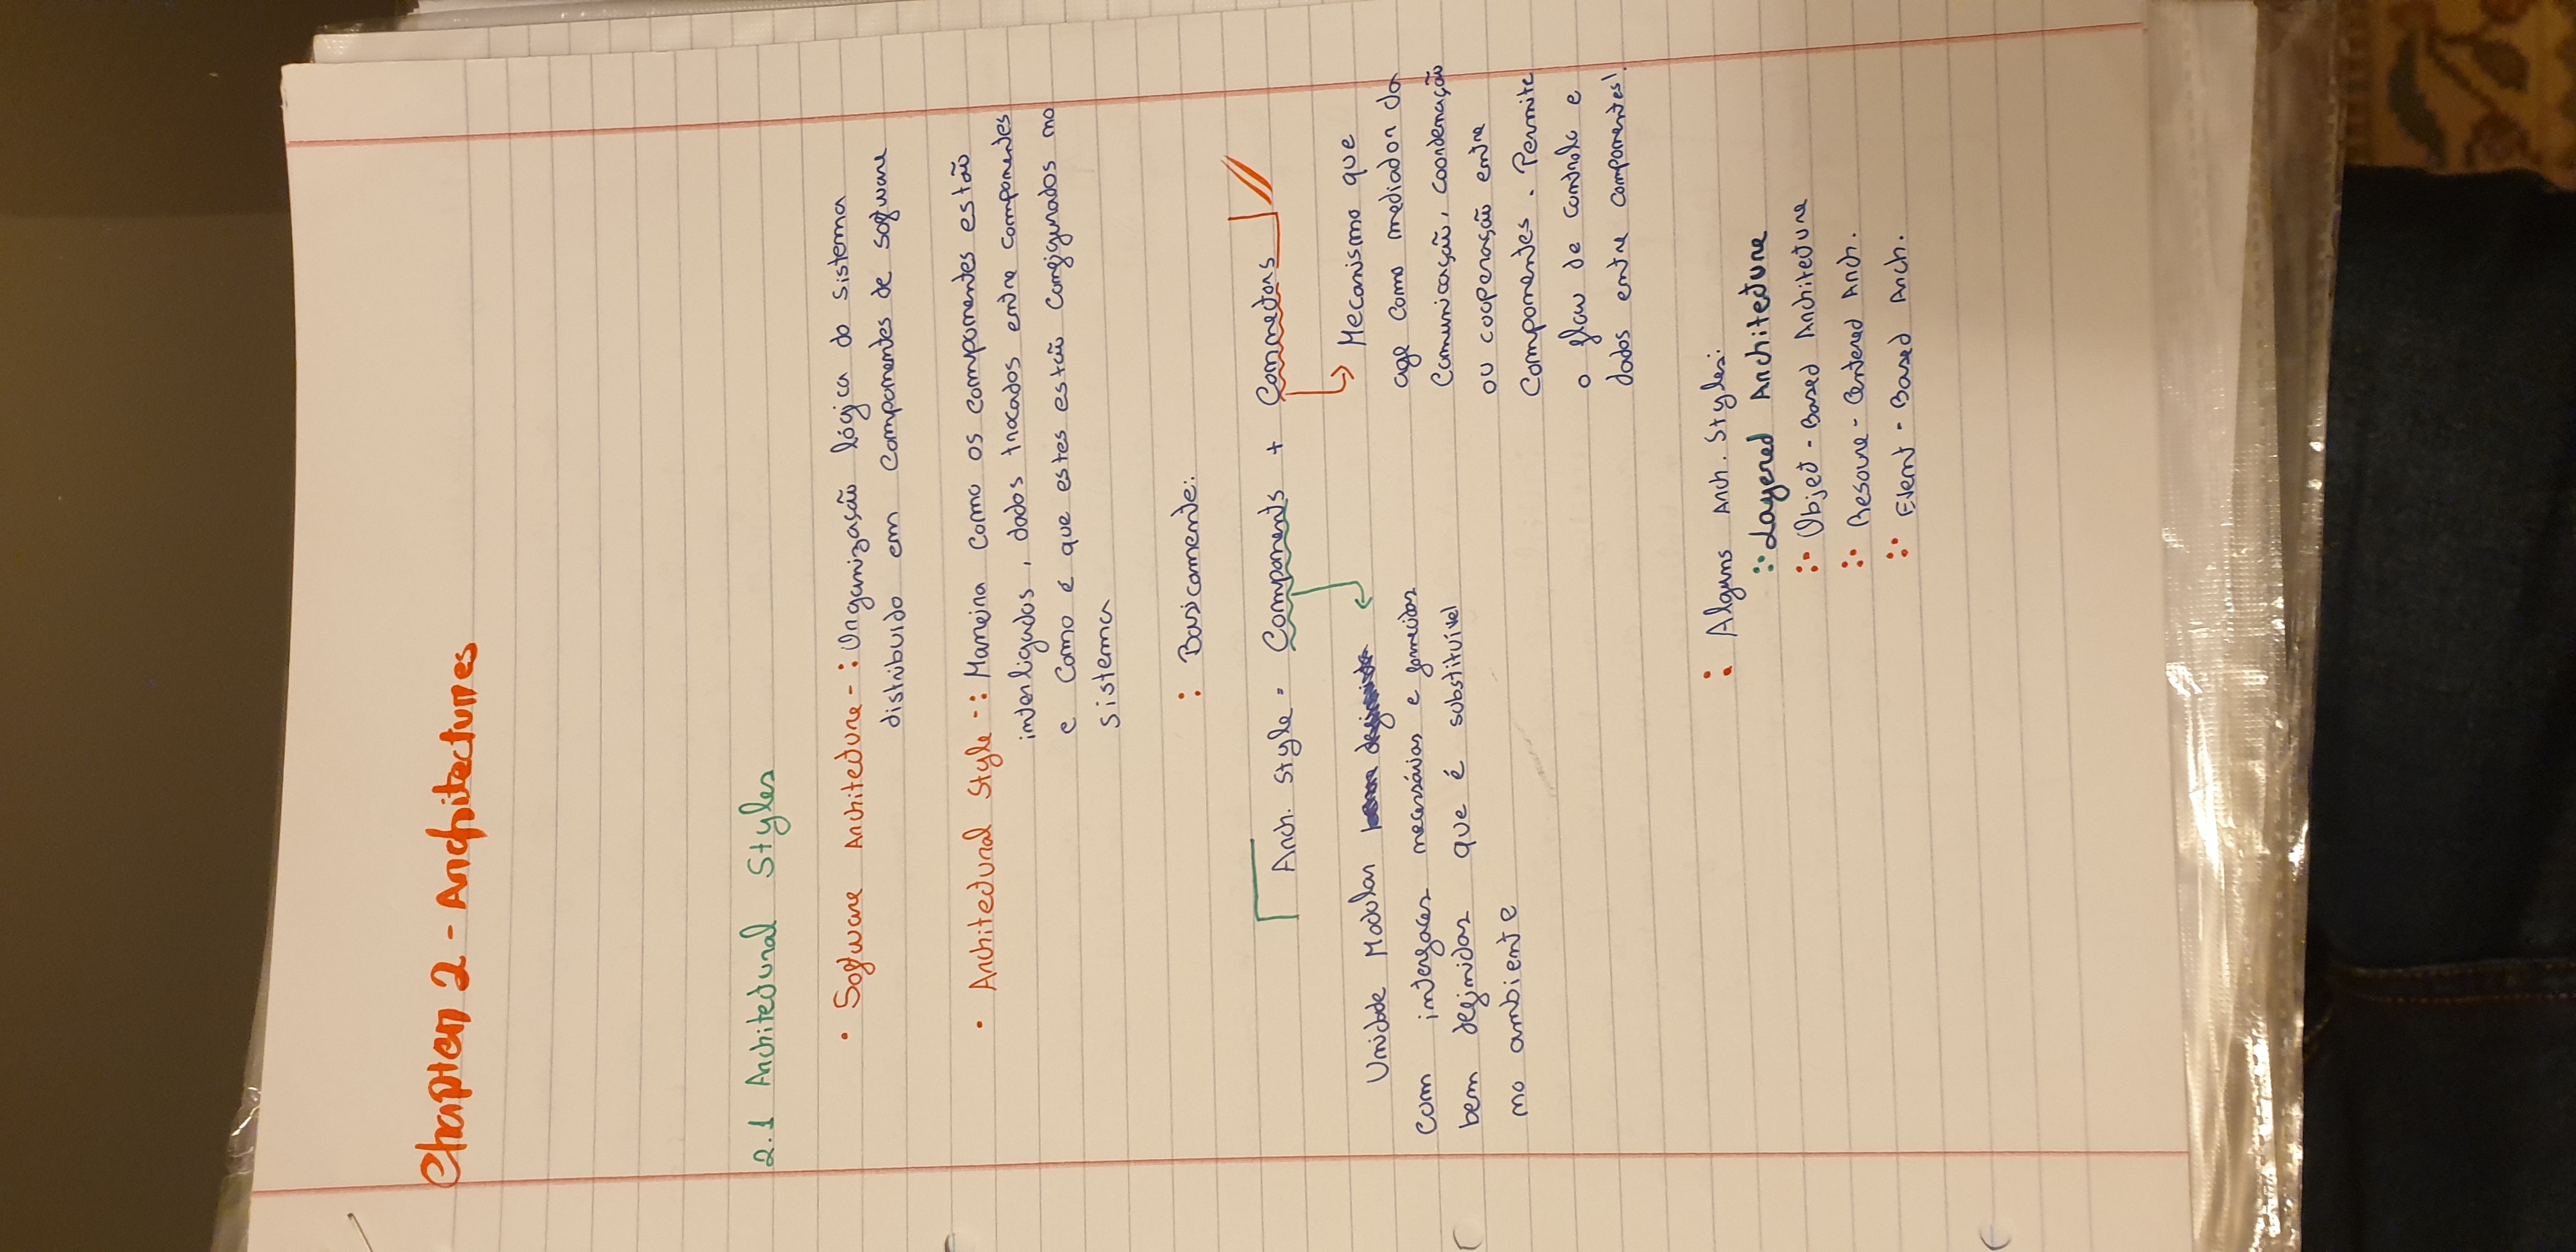 Chapter 2 - Architectures
2.1 Architectural Styles
• Software Architecture - : Organização lógica do sistema
distribuido em componentes de software
• Architectural Style - : Maneira como os componentes estão
interligados, dados trocados entre componentes
e como é que estes estão configurados no
sistema
: Basicamente:
Arch. Style = Components + Connectors
Unidade Modular
com interfaces necessárias e fornecidas
bem definidas que é substituível
no ambiente
Mecanismo que
age como mediador da
comunicação, coordenação
ou cooperação entre
componentes. Permite
o flow de controlo e
dados entre componentes!
: Alguns Arch. Styles:
:· Layered Architecture
:· Object - Based Architecture
:· Resource - Centered Arch.
:· Event - Based Arch.